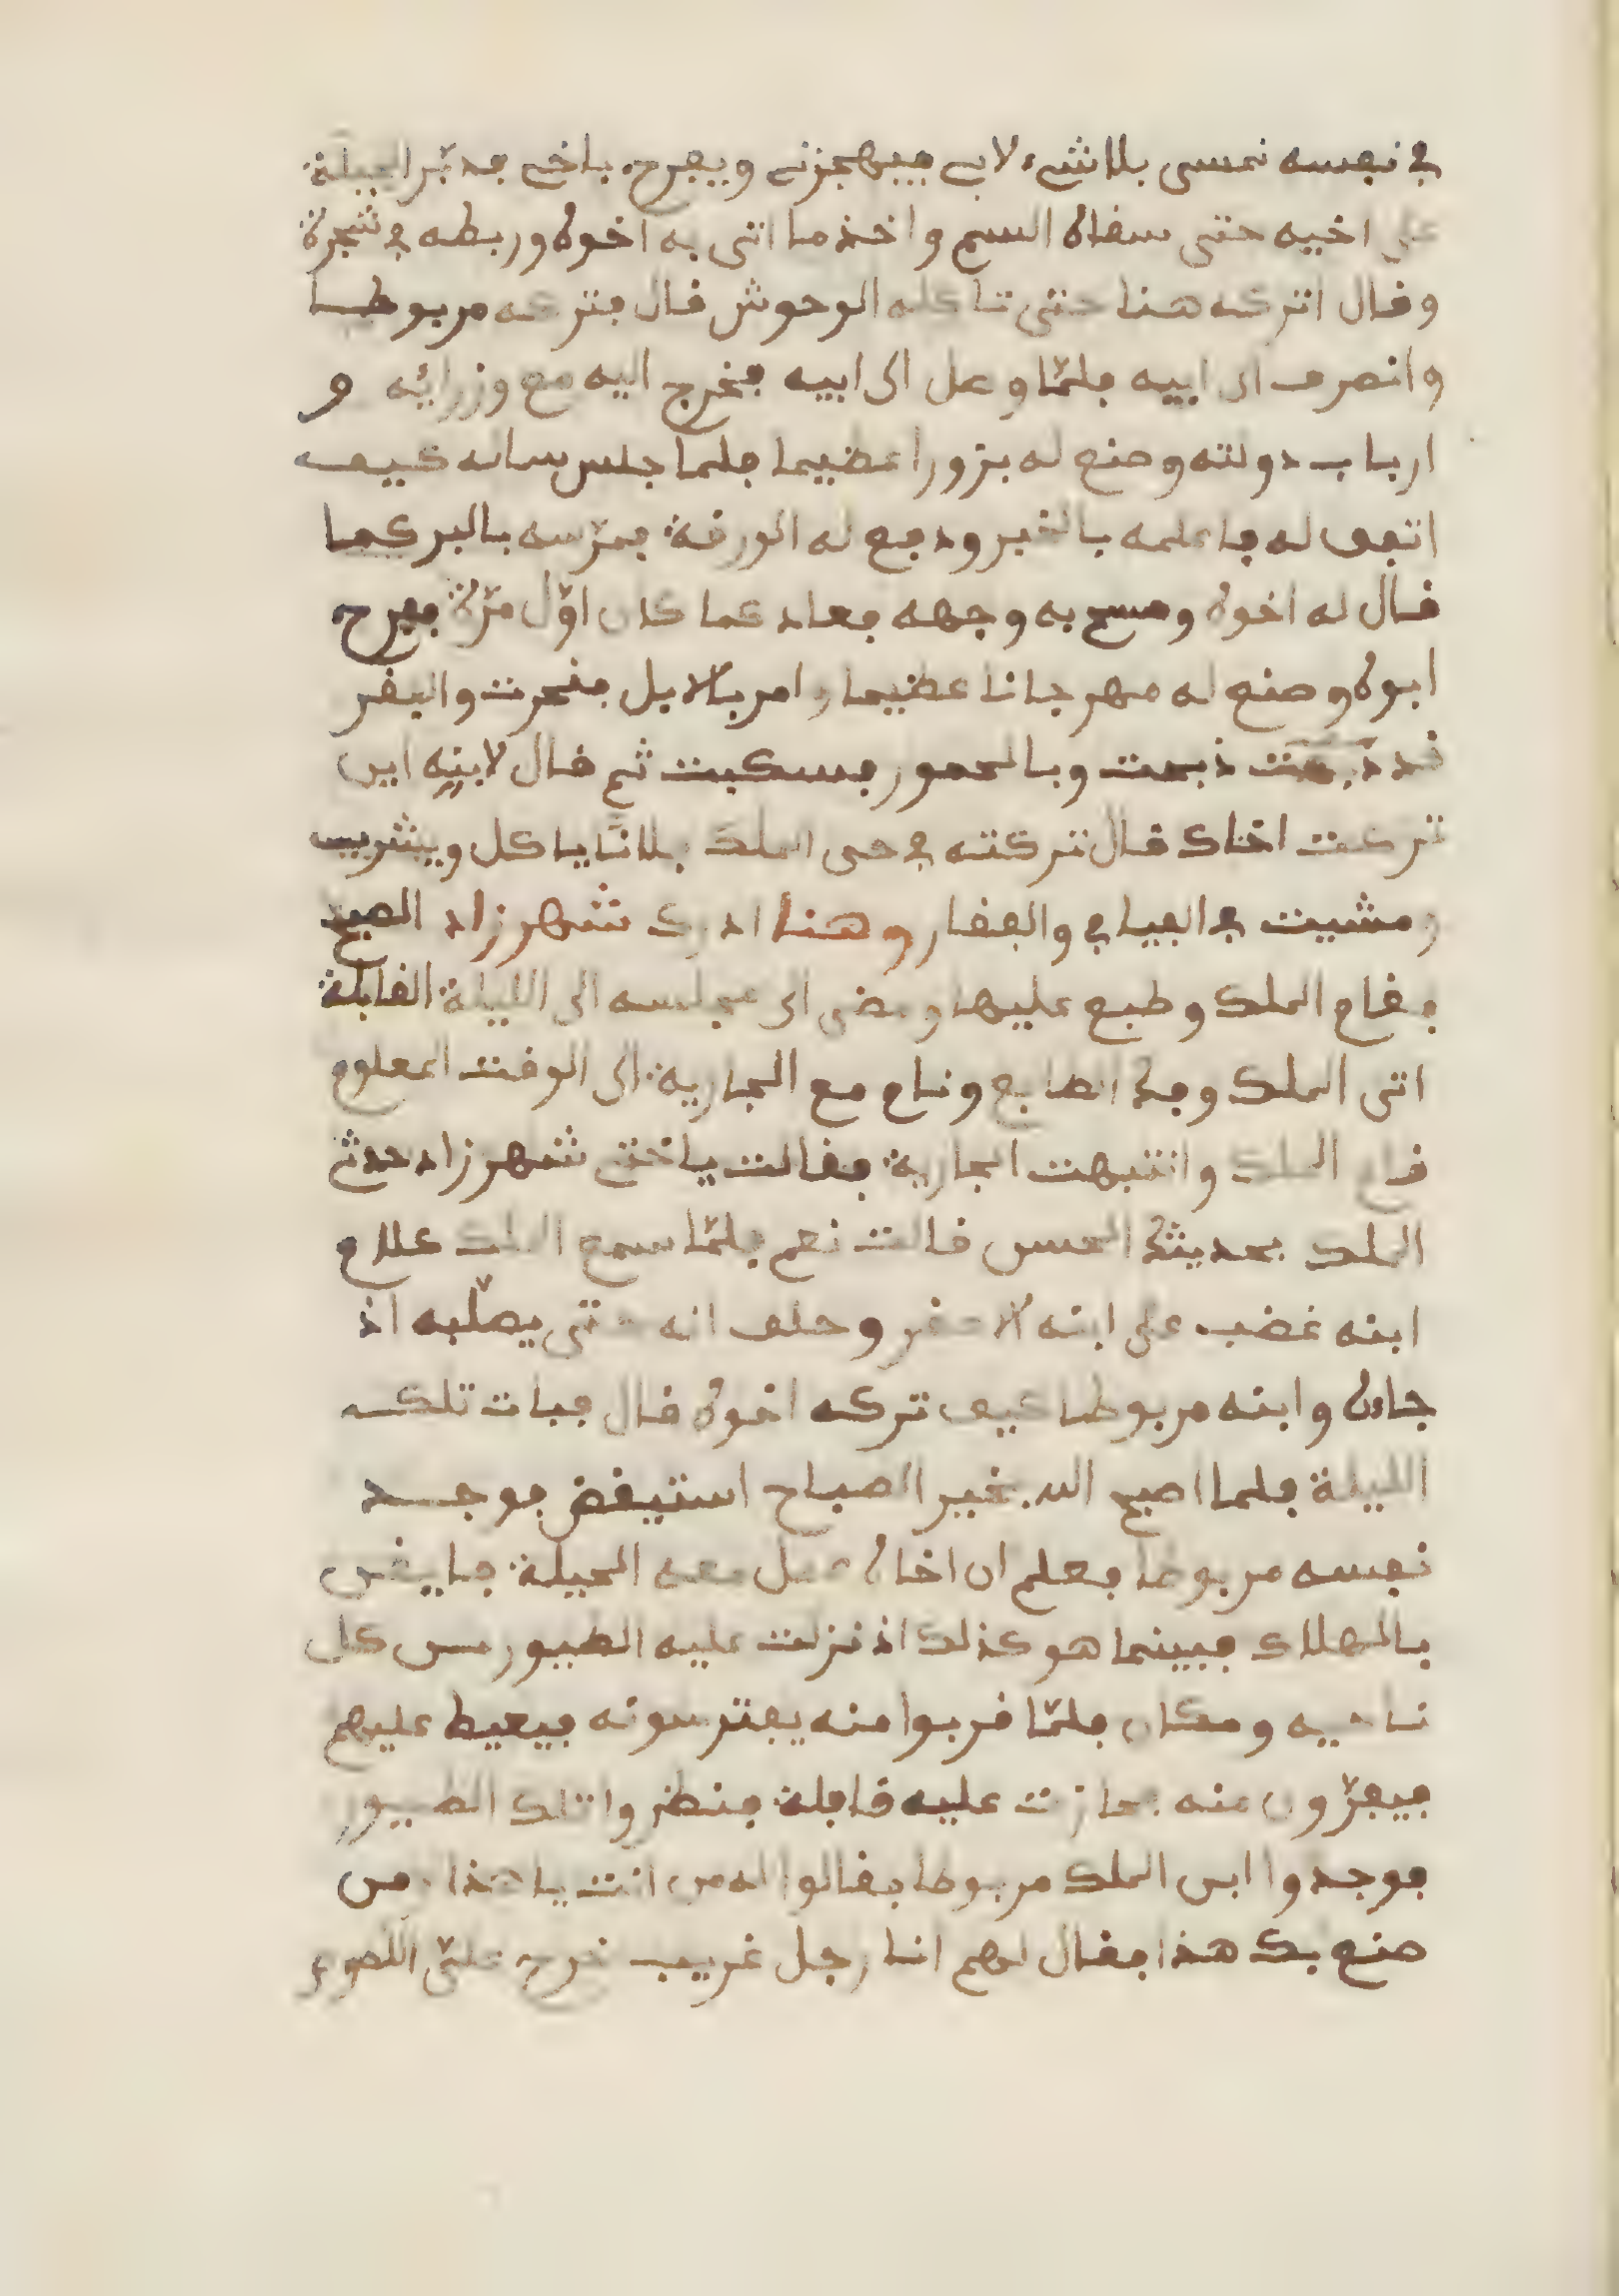 في نفسه نمسى بلا شيء لابي فيهجزني ويفرح باخي فدبّر الحيلة
على اخيه حتى سقاه السم واخذ ما اتى به اخوه وربطه في شجرة
وقال اتركه هنا حتى تاكله الوحوش قال فتركه مربوطا
وانصرف الى ابيه فلمّا وصل الى ابيه فخرج اليه مع وزرائه و
ارباب دولته وصنع له بزورا عظيما فلما جلس ساله كيف
اتفق له فاعلمه بالخبر ودفع له الورقة فمرّسه بالبر كما
قال له اخوه ومسح به وجهه فعاد كما كان اوّل مرّة ففرح
ابوه وصنع له مهرجانا عظيما وامر بالابل فنحرت والبقر
قد ذبحت وبالخمور فسكبت ثم قال لابنه اين
تركت اخاك قال تركته في حمى الملك فلانا ياكل ويشرب
ومشيت في الفيافي والقفار وهنا ادرك شهرزاد الصبح
فقام الملك وطبع عليها ومضى الى مجلسه الى الليلة القابلة
اتى الملك وفك الطابع ونام مع الجارية الى الوقت المعلوم
قام الملك وانتبهت الجارية فقالت ياختي شهرزاد حدث
الملك بحديثك الحسن قالت نعم فلمّا سمع الملك كلام
ابنه غضب على ابنه الاصغر وحلف انه حتى يصلّبه اذ
جاءه وابنه مربوطا كيف تركه اخوه قال فبات تلك
الليلة فلما اصبح الله بخير الصباح استيقض فوجد
نفسه مربوطا فعلم ان اخاه عمل معه الحيلة فايقن
بالهلاك فبينما هو كذلك اذ نزلت عليه الطيور من كل
ناحيه ومكان فلمّا قربوا منه يفترسونه فيعيط عليهم
فيفرّون عنه فجازت عليه قافلة فنظروا تلك الطيور
فوجدوا ابن الملك مربوطا فقالوا له من انت يا هذا ومن
صنع بك هذا فقال لهم انا رجل غريب خرج عليّ اللصوص